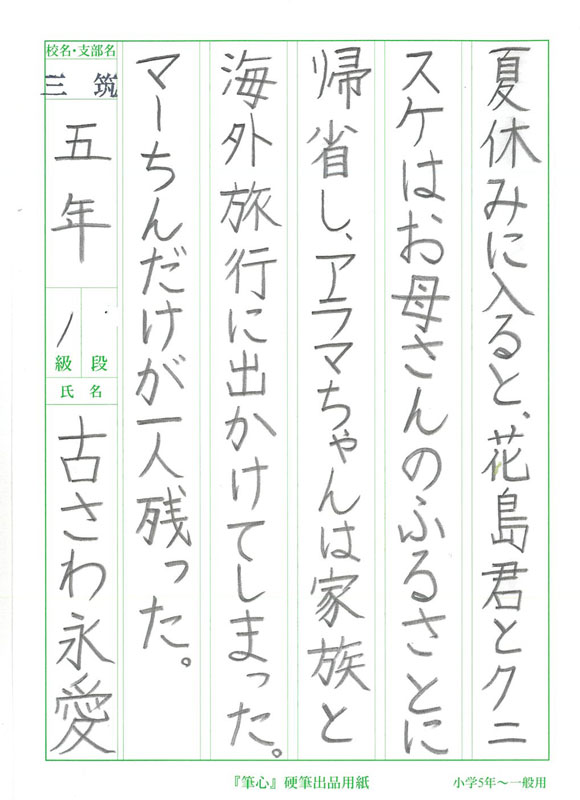 夏休みに入ると、花島君とクニ
スケはお母さんのふるさとに
帰省し、アラマちゃんは家族と
海外旅行に出かけてしまった。
マーちんだけが一人残った。
校名・支部名
三筑
五年
1
級 段
氏 名
古さわ永愛
『筆心』硬筆出品用紙
小学5年〜一般用